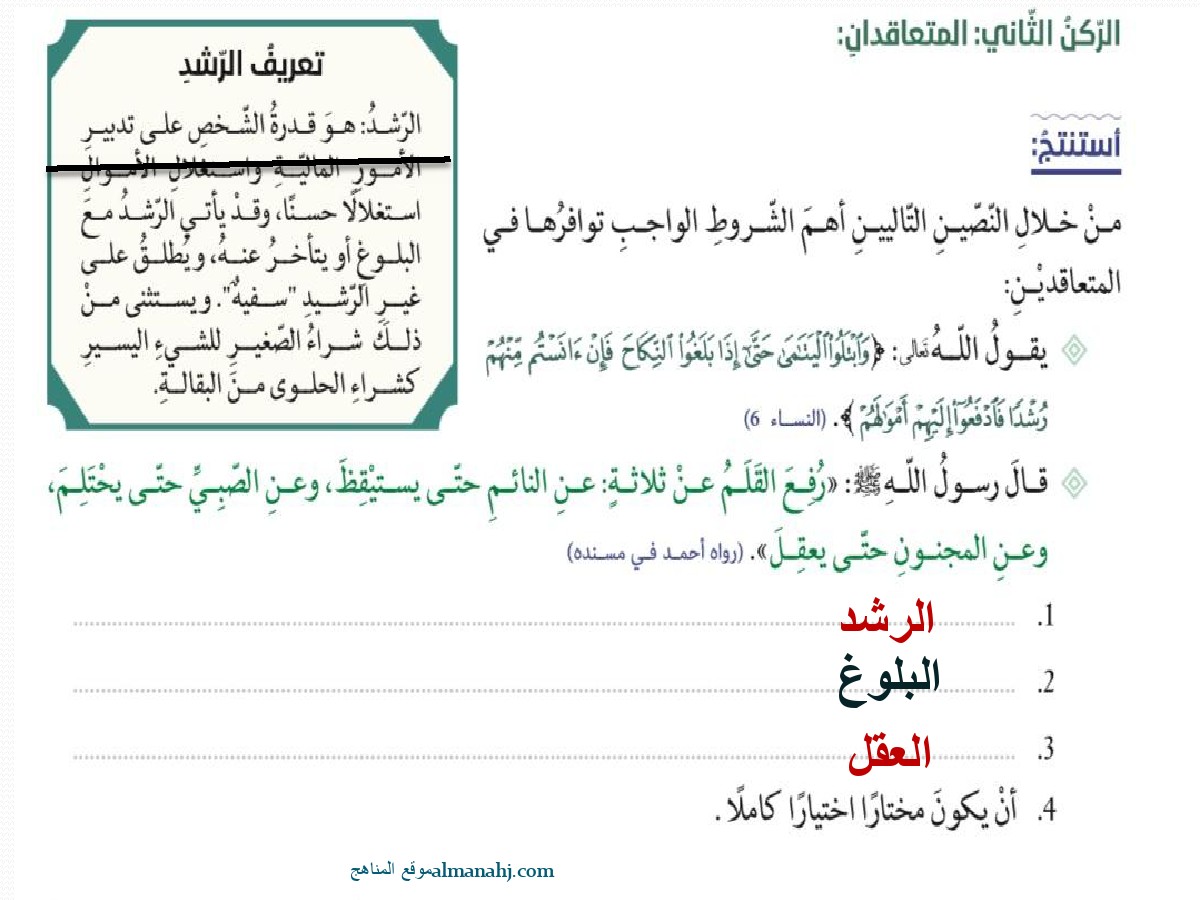 الرّكنُ الثّاني: المتعاقدانِ:
أستنتجُ:
منْ خلالِ النّصّينِ التّاليينِ أهمَ الشّروطِ الواجبِ توافرُها في
المتعاقديْنِ:
يقولُ اللّهُ تعالى: ﴿وَٱبۡتَلُواْ ٱلۡيَتَٰمَىٰ حَتَّىٰٓ إِذَا بَلَغُواْ ٱلنِّكَاحَ فَإِنۡ ءَانَسۡتُم مِّنۡهُمۡ
رُشۡدٗا فَٱدۡفَعُوٓاْ إِلَيۡهِمۡ أَمۡوَٰلَهُمۡ﴾. (النساء 6)
قالَ رسولُ اللّهِ ﷺ: «رُفِعَ القَلَمُ عنْ ثلاثةٍ: عنِ النائمِ حتّى يستيْقِظَ، وعنِ الصّبِيِّ حتّى يحْتَلِمَ،
وعنِ المجنونِ حتّى يعقِلَ». (رواه أحمد في مسنده)
1. الرشد
2. البلوغ
3. العقل
4. أنْ يكونَ مختارًا اختيارًا كاملًا.
تعريفُ الرّشدِ
الرّشدُ: هوَ قدرةُ الشّخصِ على تدبيرِ
الأمورِ الماليّةِ واستغلالِ الأموالِ
استغلالًا حسنًا، وقدْ يأتي الرّشدُ معَ
البلوغِ أو يتأخرُ عنهُ، ويُطلقُ على
غيرِ الرّشيدِ "سفيهٌ". ويستثنى منْ
ذلكَ شراءُ الصّغيرِ للشيءِ اليسيرِ
كشراءِ الحلوى منَ البقالةِ.
موقع المناهج almanahj.com